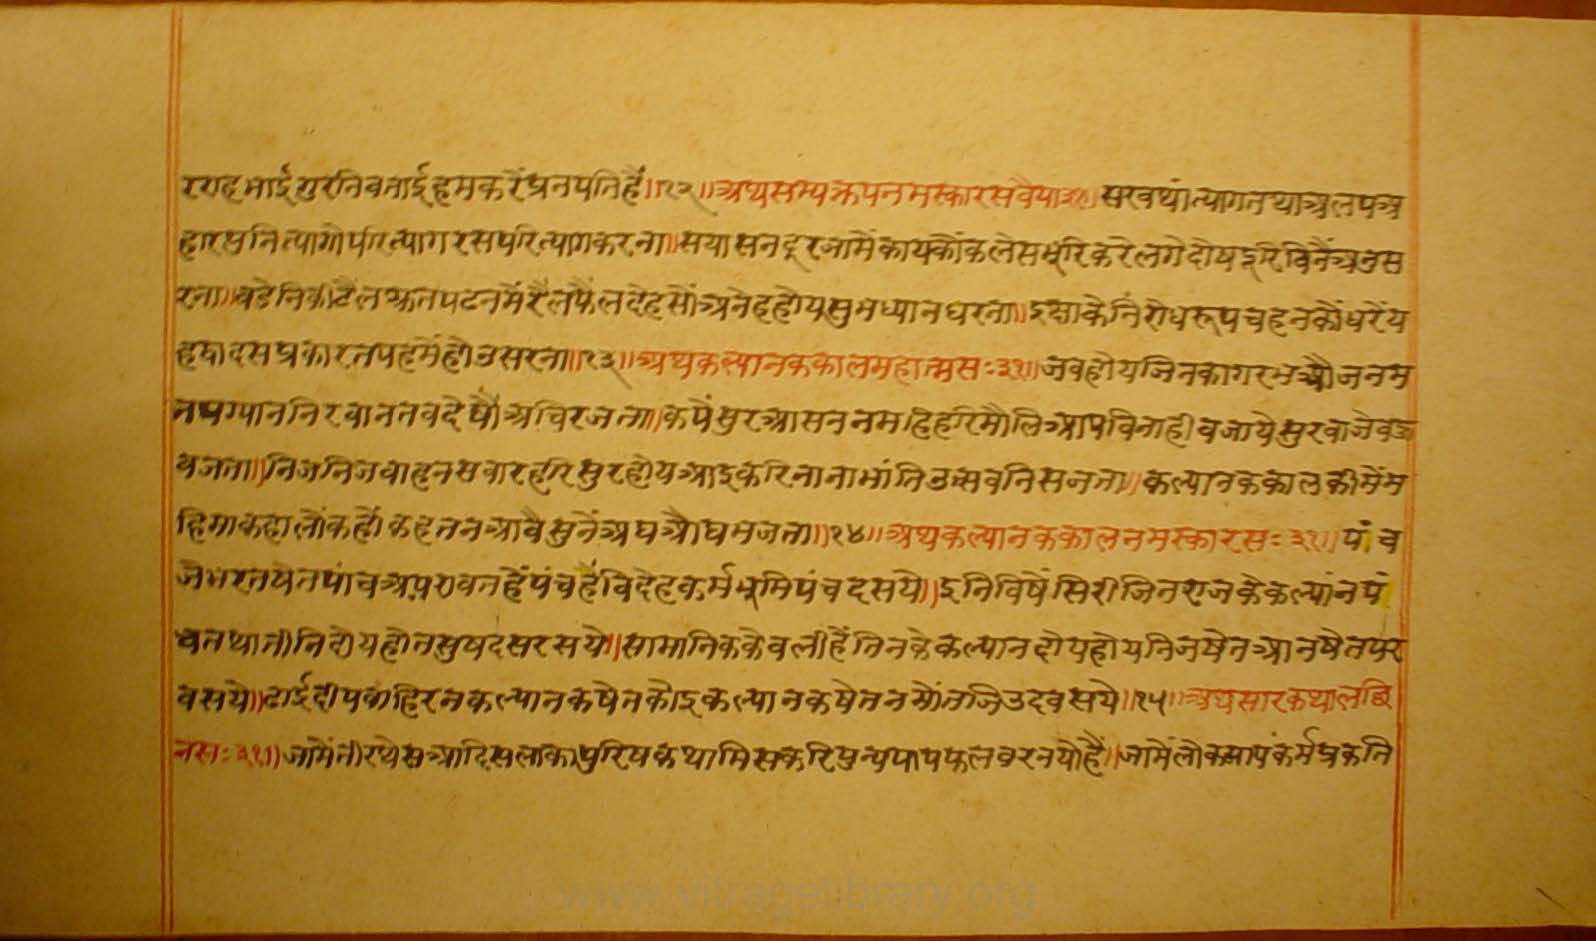 रगहमाईगुरनिवताईहमकरैंप्रनपतिहैं॥१२॥अथसम्यक्तपनमस्कारसवैया३१॥सरवथांत्यागतथाअलपअ
हारमुनित्यागोपरित्यागरसपरित्यागकरना॥सयासनदूरजामेंकायकौंकलेसभूरिकरेलगेदोयदूरिविनैंअउस
रना॥वडेनिकीटैलझनपटनमैंरैलफैलदेहसोंअनेहहोयसुमध्यानधरना॥इक्षाकेनिरोधरूपचहनकौंधरेंय
हयादसप्रकारतपहमैंहोउसरना॥१३॥अथकल्यानककालमहात्मसः३१॥जवहोयजिनकागरभऔजनम
तपग्यानिनिरवानतवदेषौअचिरजता॥कपेंसुरआसननमहिहरिमौलिआपविनाहीवजायेसुरवाजेवज
वजता॥निजनिजवाहनसवारहरिसुरहोयआइकरिनानाभांतिउत्सवनिसजता॥कल्यानककालकीमेंम
हिमाकहालौंकहौंकहतनआवैसुनेंअघऔघमजता॥१४॥अथकल्यानककालनमस्कारसः३१॥पंच
जेभरतषेतपांचअपठवतहैंपंचहैंविदेहकर्मभूमिपंचदसये॥इनिविषेंसिरीजिनराजकेकल्यांनपं
चतथातीनिदोयहोतसुषदसरसये॥सामानिककेवलीहैंतिनकेकल्यानदोयहोयनिजषेतआनषेतपर
वसये॥ढाईदीपवाहिरनकल्यानकषेतकोइकल्यानकषेतनमौंतजिउदवसये॥१५॥अथसारकथालब्धि
नसः३१॥जामेंतीरथेसआदिसलाकापुरिषकथामिसकरिपुन्यपापफलवरनयोहैं॥जामेंलोकमापकर्मप्रकति
www.vitragelibrary.org